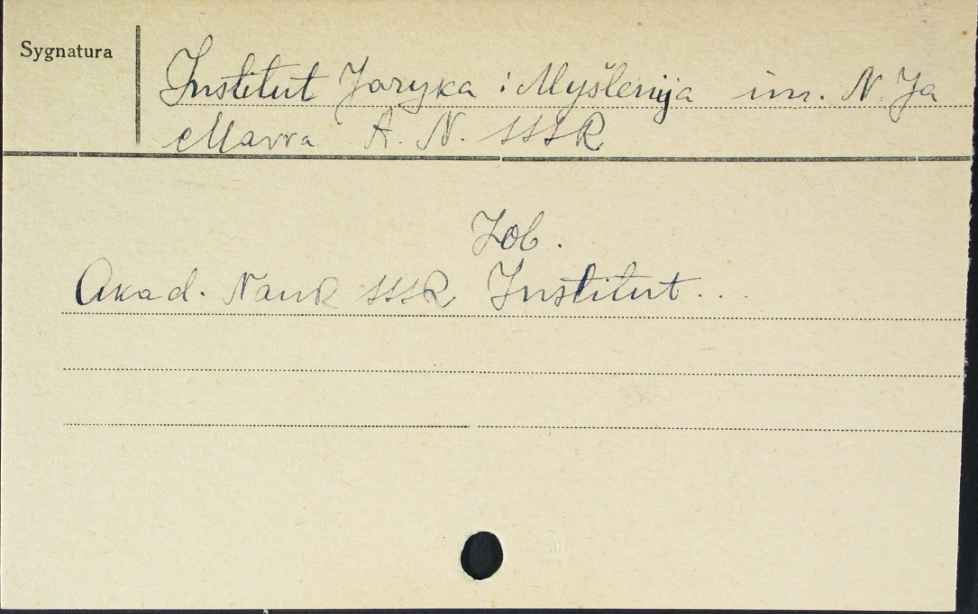 Sygnatura
Institut Jazyka i Myšlenija im. N. Ja
Marra A. N. SSSR
Zob.
Akad. Nauk SSSR Institut...